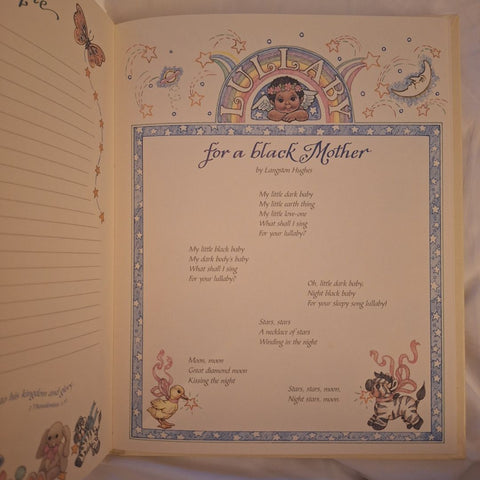 to his kingdom and glory.
LULLABY
for a black Mother
by Langston Hughes
My little dark baby
My little earth thing
My little love-one
What shall I sing
For your lullaby?
My little black baby
My dark body's baby
What shall I sing
For your lullaby?
Oh, little dark baby,
Night black baby
For your sleepy song lullaby!
Stars, stars
A necklace of stars
Winding in the night
Moon, moon
Great diamond moon
Kissing the night
Stars, stars, moon,
Night stars, moon.